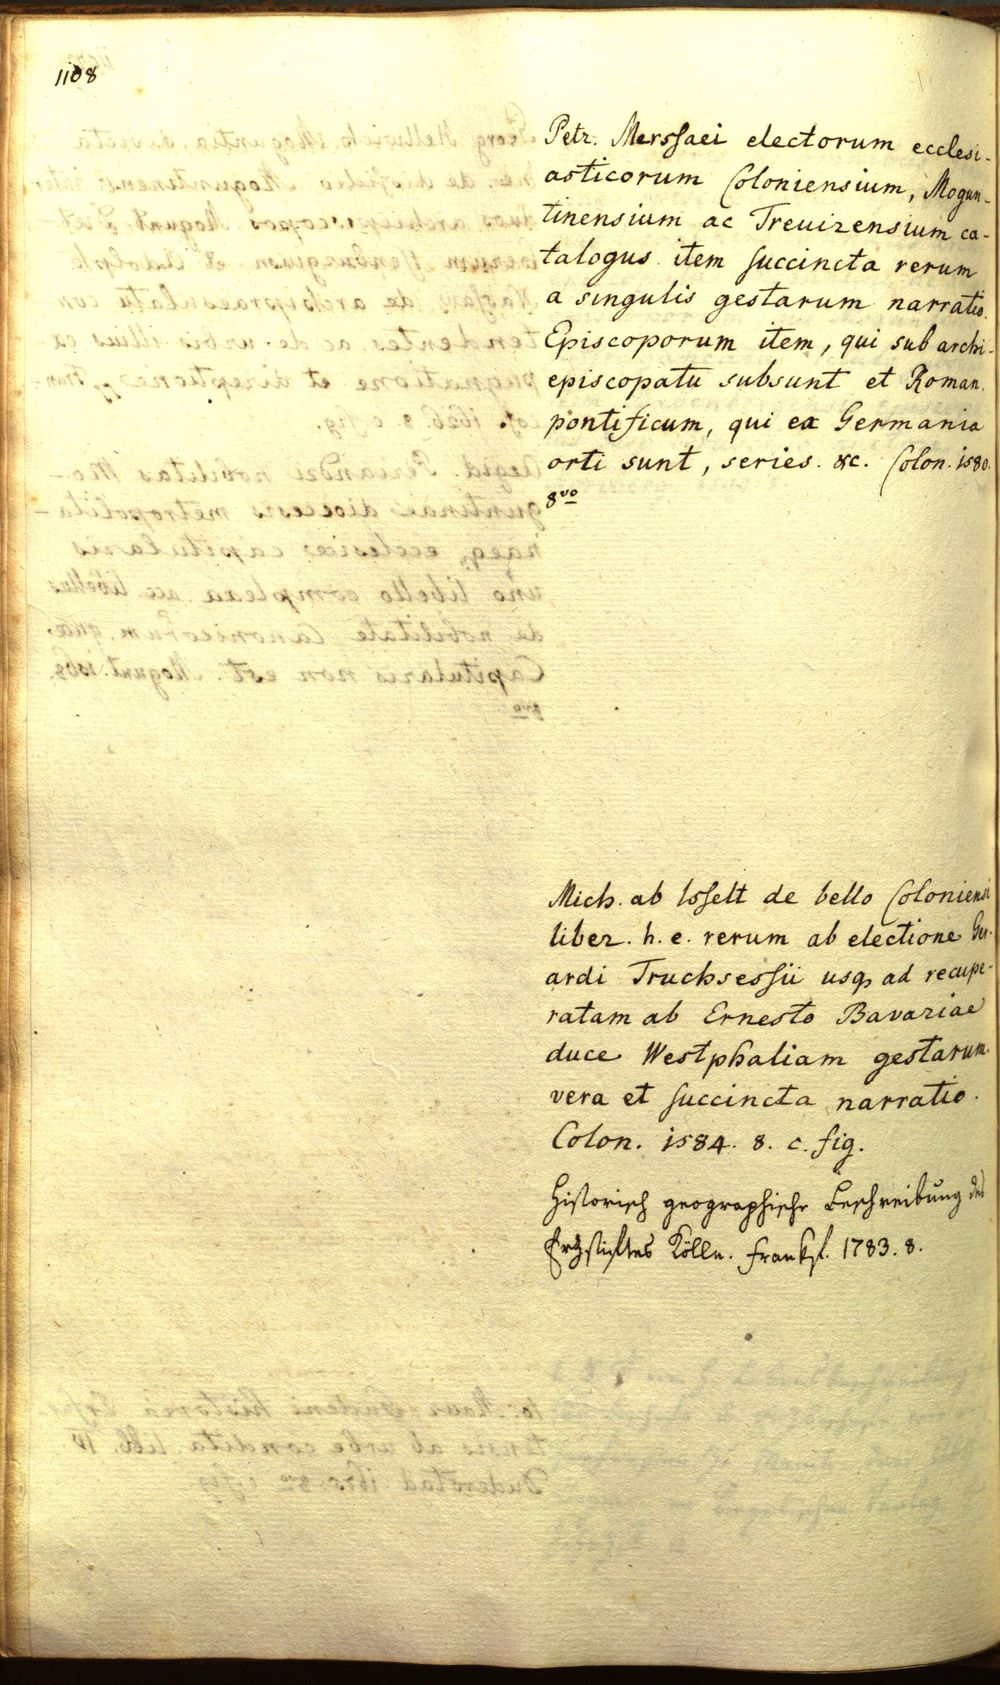 1108
Petr. Merssaei electorum ecclesi-
asticorum Coloniensium, Mogun-
tinensium ac Trevirensium ca-
talogus item succincta rerum
a singulis gestarum narratio.
Episcoporum item, qui sub archi-
episcopatu subsunt et Roman.
pontificum, qui ex Germania
orti sunt, series. &c. Colon. 1580.
8vo
Mich. ab Isselt de bello Coloniensi
liber. h. e. rerum ab electione Geb-
ardi Truchsessii usq ad recupe-
ratam ab Ernesto Bavariae
duce Westphaliam gestarum
vera et succincta narratio.
Colon. 1584. 8. c. fig.
Historisch geographische Beschreibung des
Erzstiftes Kölln. Frankf. 1783. 8.